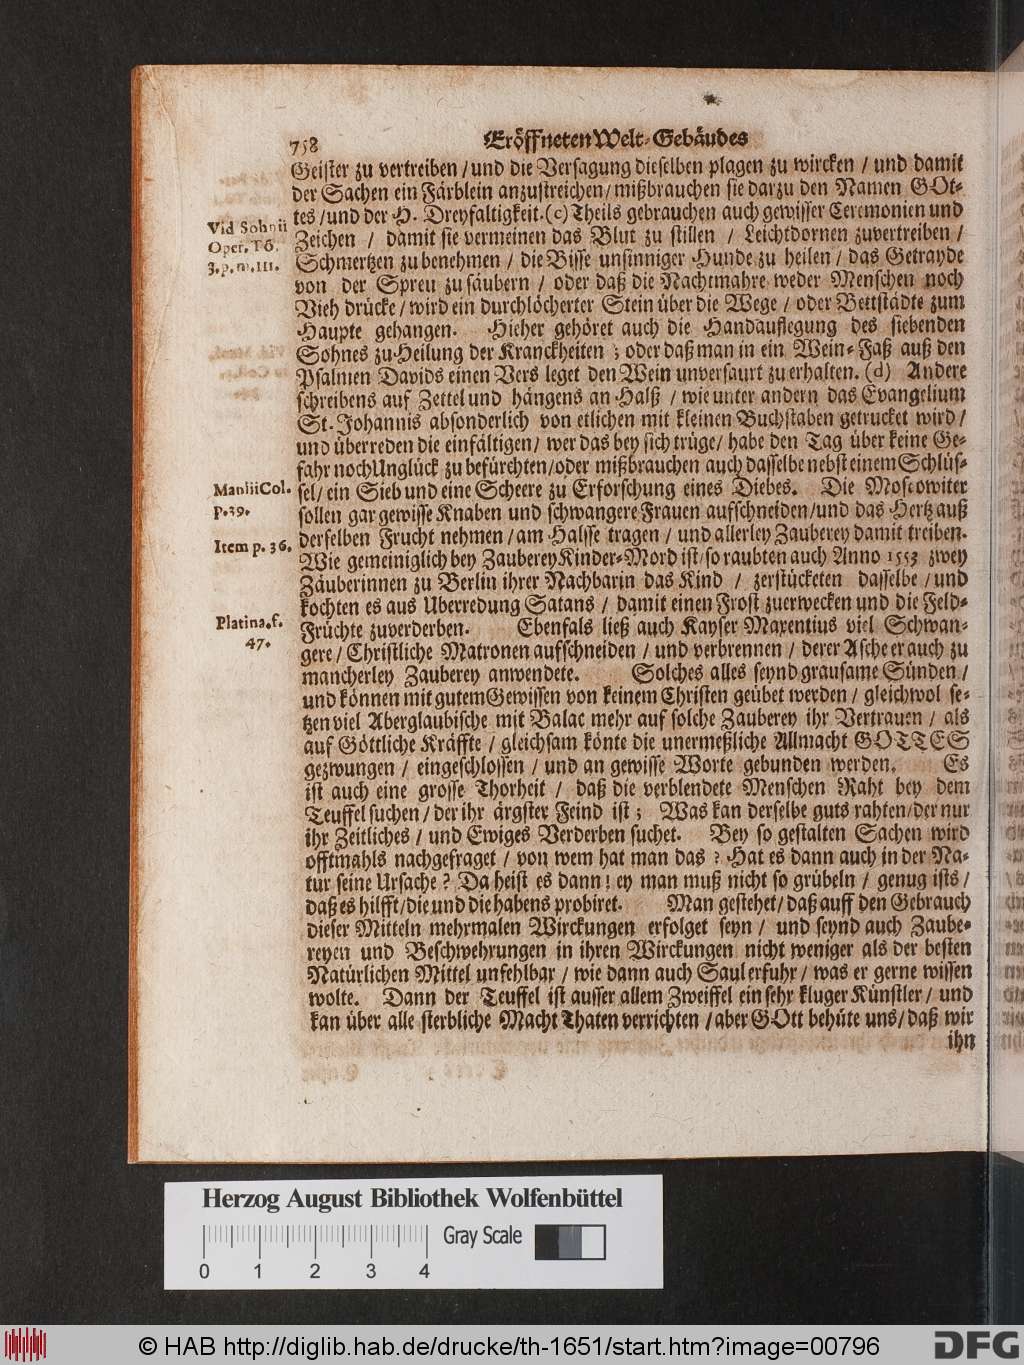 758
Eröffneten Welt-Gebäudes
Geister zu vertreiben / und die Versagung dieselben plagen zu wircken / und damit
der Sachen ein Färblein anzustreichen / mißbrauchen sie darzu den Namen GOt-
tes / und der H. Dreyfaltigkeit. (c) Theils gebrauchen auch gewisser Ceremonien und
Zeichen / damit sie vermeinen das Blut zu stillen / Leichtdornen zuvertreiben /
Schmertzen zu benehmen / die Bisse unsinniger Hunde zu heilen / das Getrayde
von der Spreu zu säubern / oder daß die Nachtmahre weder Menschen noch
Vieh drücke / wird ein durchlöcherter Stein über die Wege / oder Bettstädte zum
Haupte gehangen. Hieher gehöret auch die Handauflegung des siebenden
Sohnes zu Heilung der Kranckheiten ; oder daß man in ein Wein-Faß auß den
Psalmen Davids einen Vers leget den Wein unversaurt zu erhalten. (d) Andere
schreibens auf Zettel und hängens an Halß / wie unter andern das Evangelium
St. Johannis absonderlich von etlichen mit kleinen Buchstaben getrucket wird /
und überreden die einfältigen / wer das bey sich trüge / habe den Tag über keine Ge-
fahr noch Unglück zu befürchten / oder mißbrauchen auch dasselbe nebst einem Schlüs-
sel / ein Sieb und eine Scheere zu Erforschung eines Diebes. Die Moscowiter
sollen gar gewisse Knaben und schwangere Frauen aufschneiden / und das Hertz auß
derselben Frucht nehmen / am Halsse tragen / und allerley Zauberey damit treiben.
Wie gemeiniglich bey Zauberey Kinder-Mord ist / so raubten auch Anno 1553 zwey
Zäuberinnen zu Berlin ihrer Nachbarin das Kind / zerstücketen dasselbe / und
kochten es aus Uberredung Satans / damit einen Frost zuerwecken und die Feld-
Früchte zuverderben. Ebenfals ließ auch Kayser Maxentius viel Schwan-
gere / Christliche Matronen aufschneiden / und verbrennen / derer Asche er auch zu
mancherley Zauberey anwendete. Solches alles seynd grausame Sünden /
und können mit gutem Gewissen von keinem Christen geübet werden / gleichwol se-
tzen viel Aberglaubische mit Balac mehr auf solche Zauberey ihr Vertrauen / als
auf Göttliche Kräffte / gleichsam könte die unermeßliche Allmacht GOTTES
gezwungen / eingeschlossen / und an gewisse Worte gebunden werden. Es
ist auch eine grosse Thorheit / daß die verblendete Menschen Raht bey dem
Teuffel suchen / der ihr ärgster Feind ist ; Was kan derselbe guts rahten / der nur
ihr Zeitliches / und Ewiges Verderben suchet. Bey so gestalten Sachen wird
offtmahls nachgefraget / von wem hat man das ? Hat es dann auch in der Na-
tur seine Ursache ? Da heist es dann ! ey man muß nicht so grübeln / genug ists /
daß es hilfft / die und die habens probiret. Man gestehet / daß auff den Gebrauch
dieser Mitteln mehrmalen Wirckungen erfolget seyn / und seynd auch Zaube-
reyen und Beschwehrungen in ihren Wirckungen nicht weniger als der besten
Natürlichen Mittel unfehlbar / wie dann auch Saul erfuhr / was er gerne wissen
wolte. Dann der Teuffel ist ausser allem Zweiffel ein sehr kluger Künstler / und
kan über alle sterbliche Macht Thaten verrichten / aber GOtt behüte uns / daß wir
ihn
Vid Sohnii
Oper. Tō.
3. p. m. III.
Manlii Col.
p. 39.
Item p. 36.
Platina. f.
47.
Herzog August Bibliothek Wolfenbüttel
Gray Scale
0 1 2 3 4
© HAB http://diglib.hab.de/drucke/th-1651/start.htm?image=00796
DFG